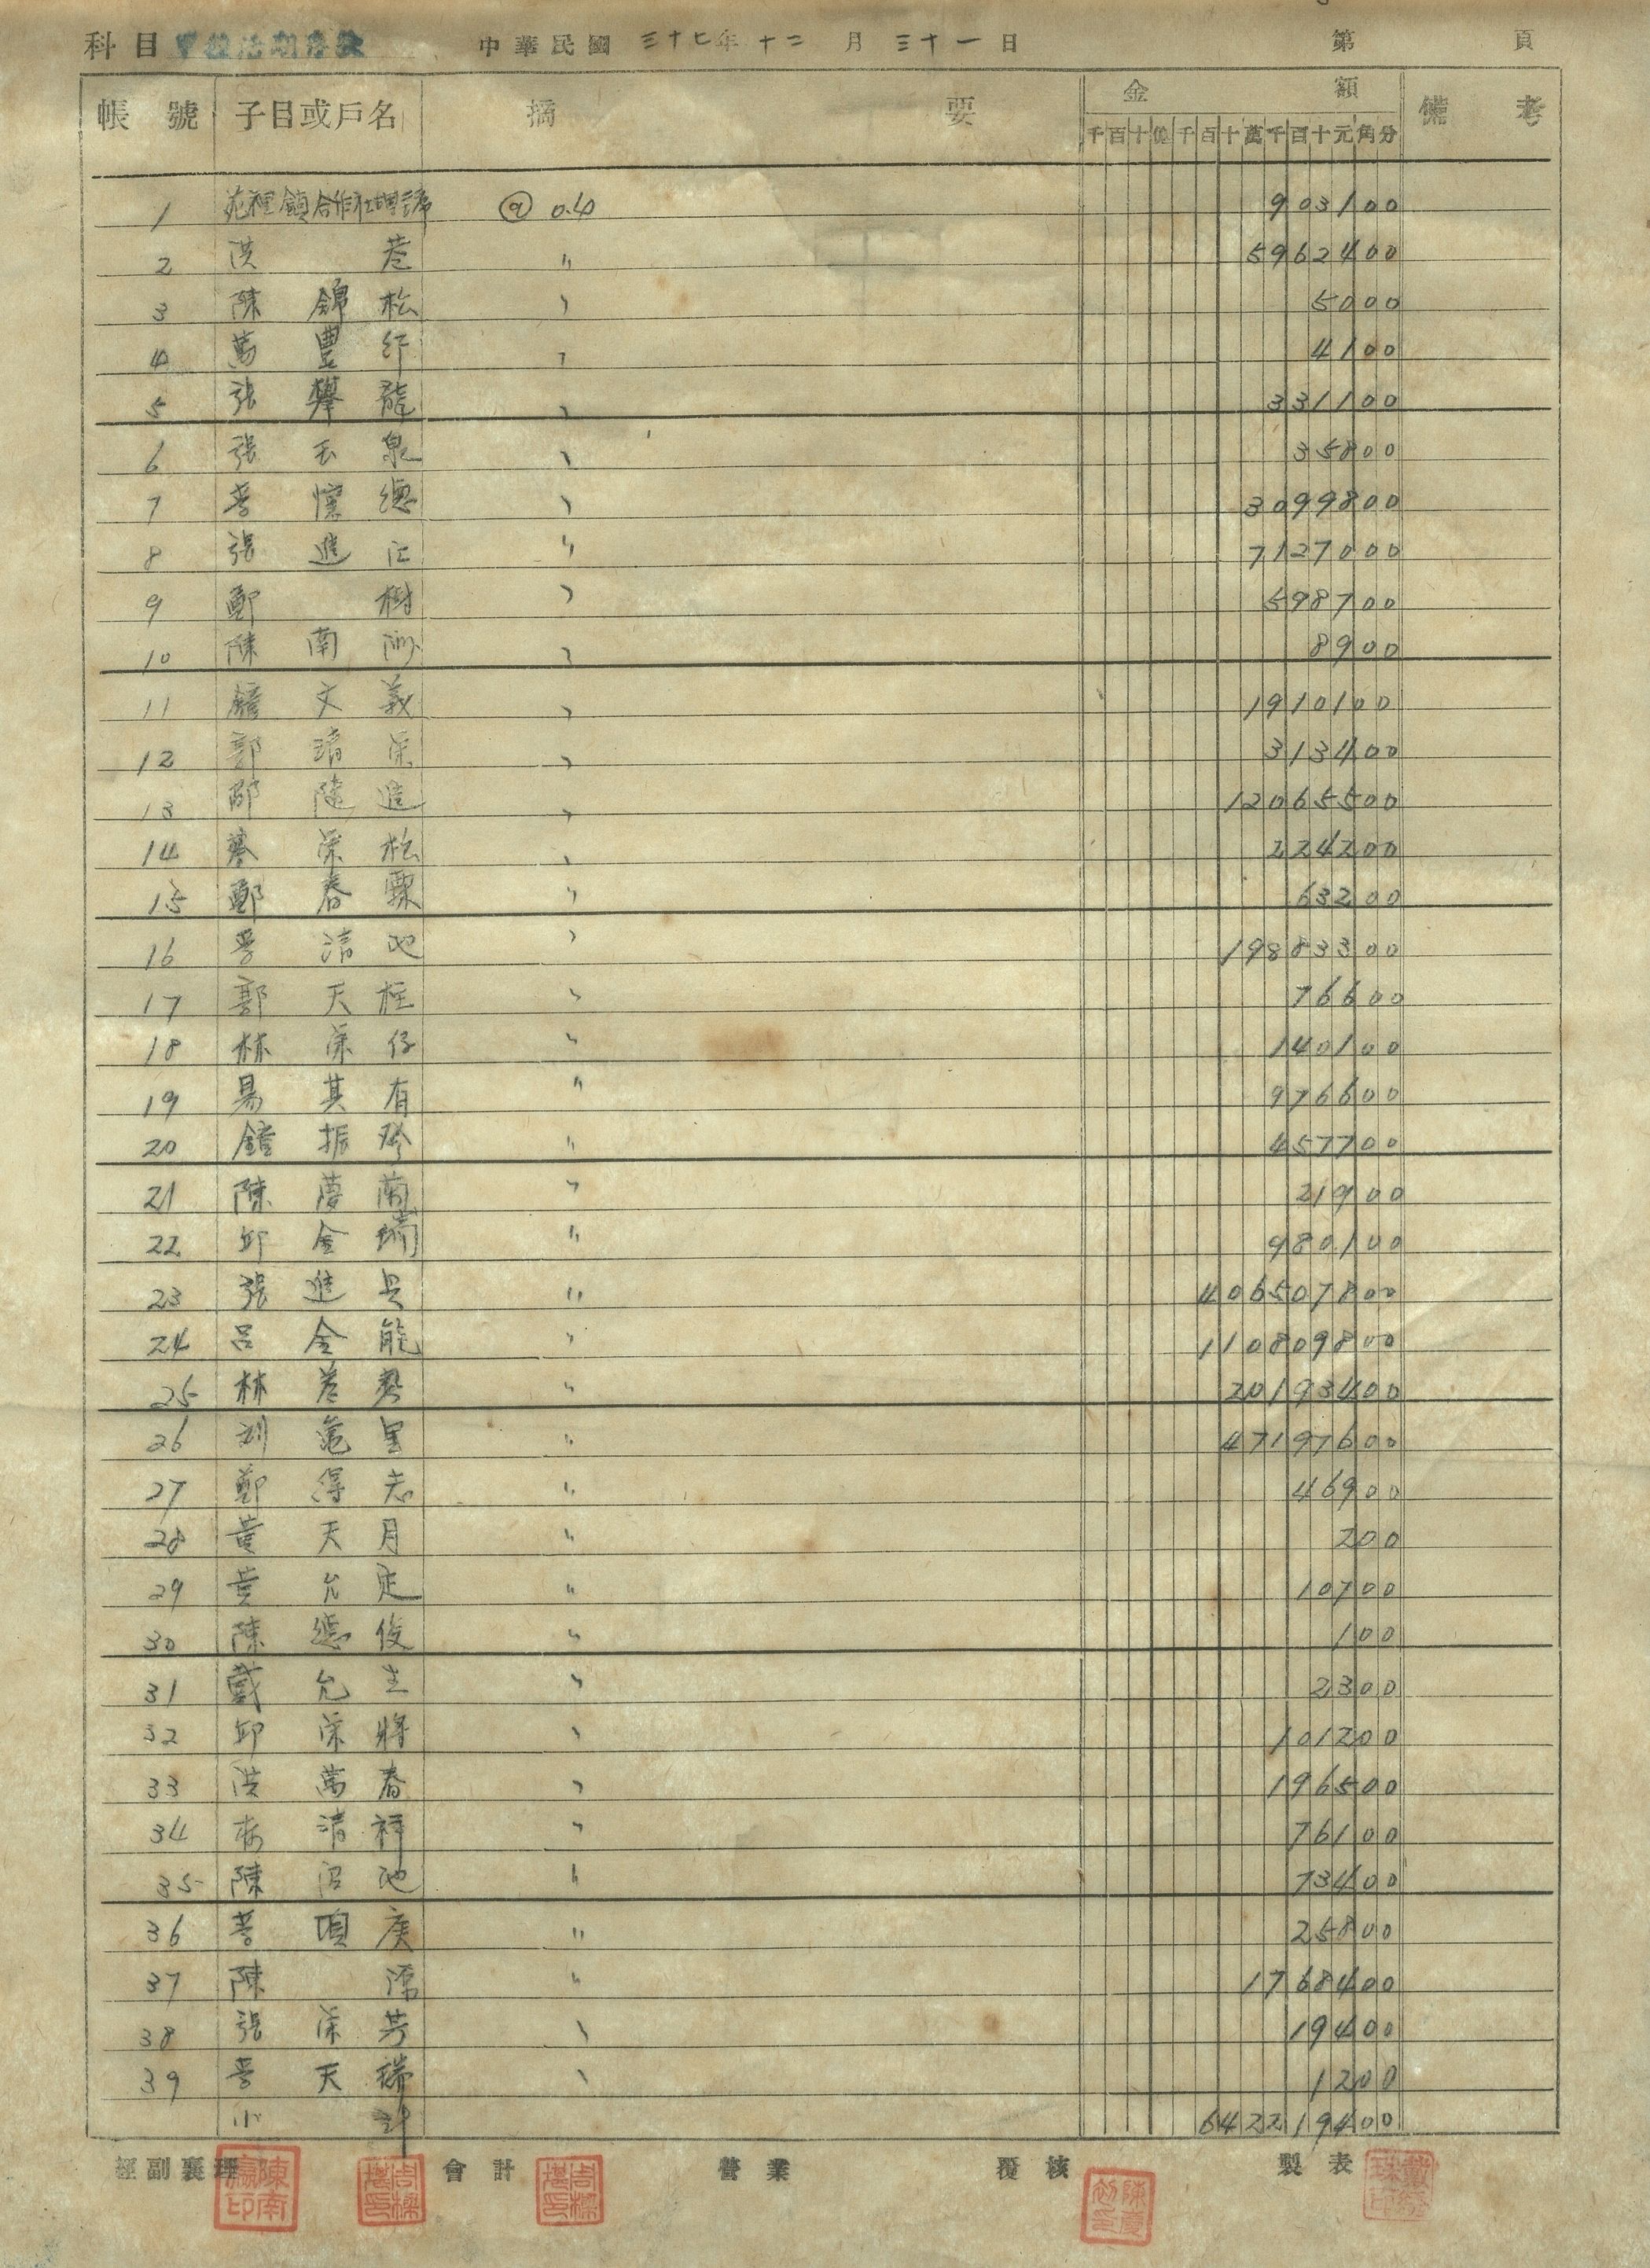 科目 甲種活期存款 中華民國 三十七年 十二 月 三十一 日 第 頁
帳號 子目或戶名 摘要 金額 備考
千百十億千百十萬千百十元角分
1 苑裡鎮合作社 @ 0.4 9031 00
2 洪 〃 59624 00
3 陳錦松 〃 50 00
4 萬豐行 〃 41 00
5 張攀龍 〃 3311 00
6 張玉泉 〃 358 00
7 懷德 〃 30998 00
8 張進江 〃 71270 00
9 鄭樹 〃 5987 00
10 陳南 〃 89 00
11 鐘文義 〃 19101 00
12 郭清深 〃 3134 00
13 陳進 〃 120655 00
14 蔡深松 〃 2242 00
15 鄭春 〃 632 00
16 清池 〃 198833 00
17 郭天柱 〃 766 00
18 林深仔 〃 1401 00
19 易其有 〃 9766 00
20 鐘振玲 〃 4577 00
21 陳夢蘭 〃 219 00
22 邱金瑞 〃 9801 00
23 張進興 〃 4065078 00
24 呂金龍 〃 1108098 00
25 林 〃 201934 00
26 劉 〃 471976 00
27 鄭得志 〃 469 00
28 黃天月 〃 2 00
29 黃允 〃 107 00
30 陳德俊 〃 1 00
31 戴允 〃 23 00
32 邱深將 〃 1012 00
33 洪萬春 〃 1965 00
34 清祥 〃 761 00
35 陳沼池 〃 734 00
36 項庚 〃 258 00
37 陳 〃 17684 00
38 張深芳 〃 194 00
39 天瑞 〃 12 00
小計 6422194 00
經副襄理 會計 營業 覆核 製表